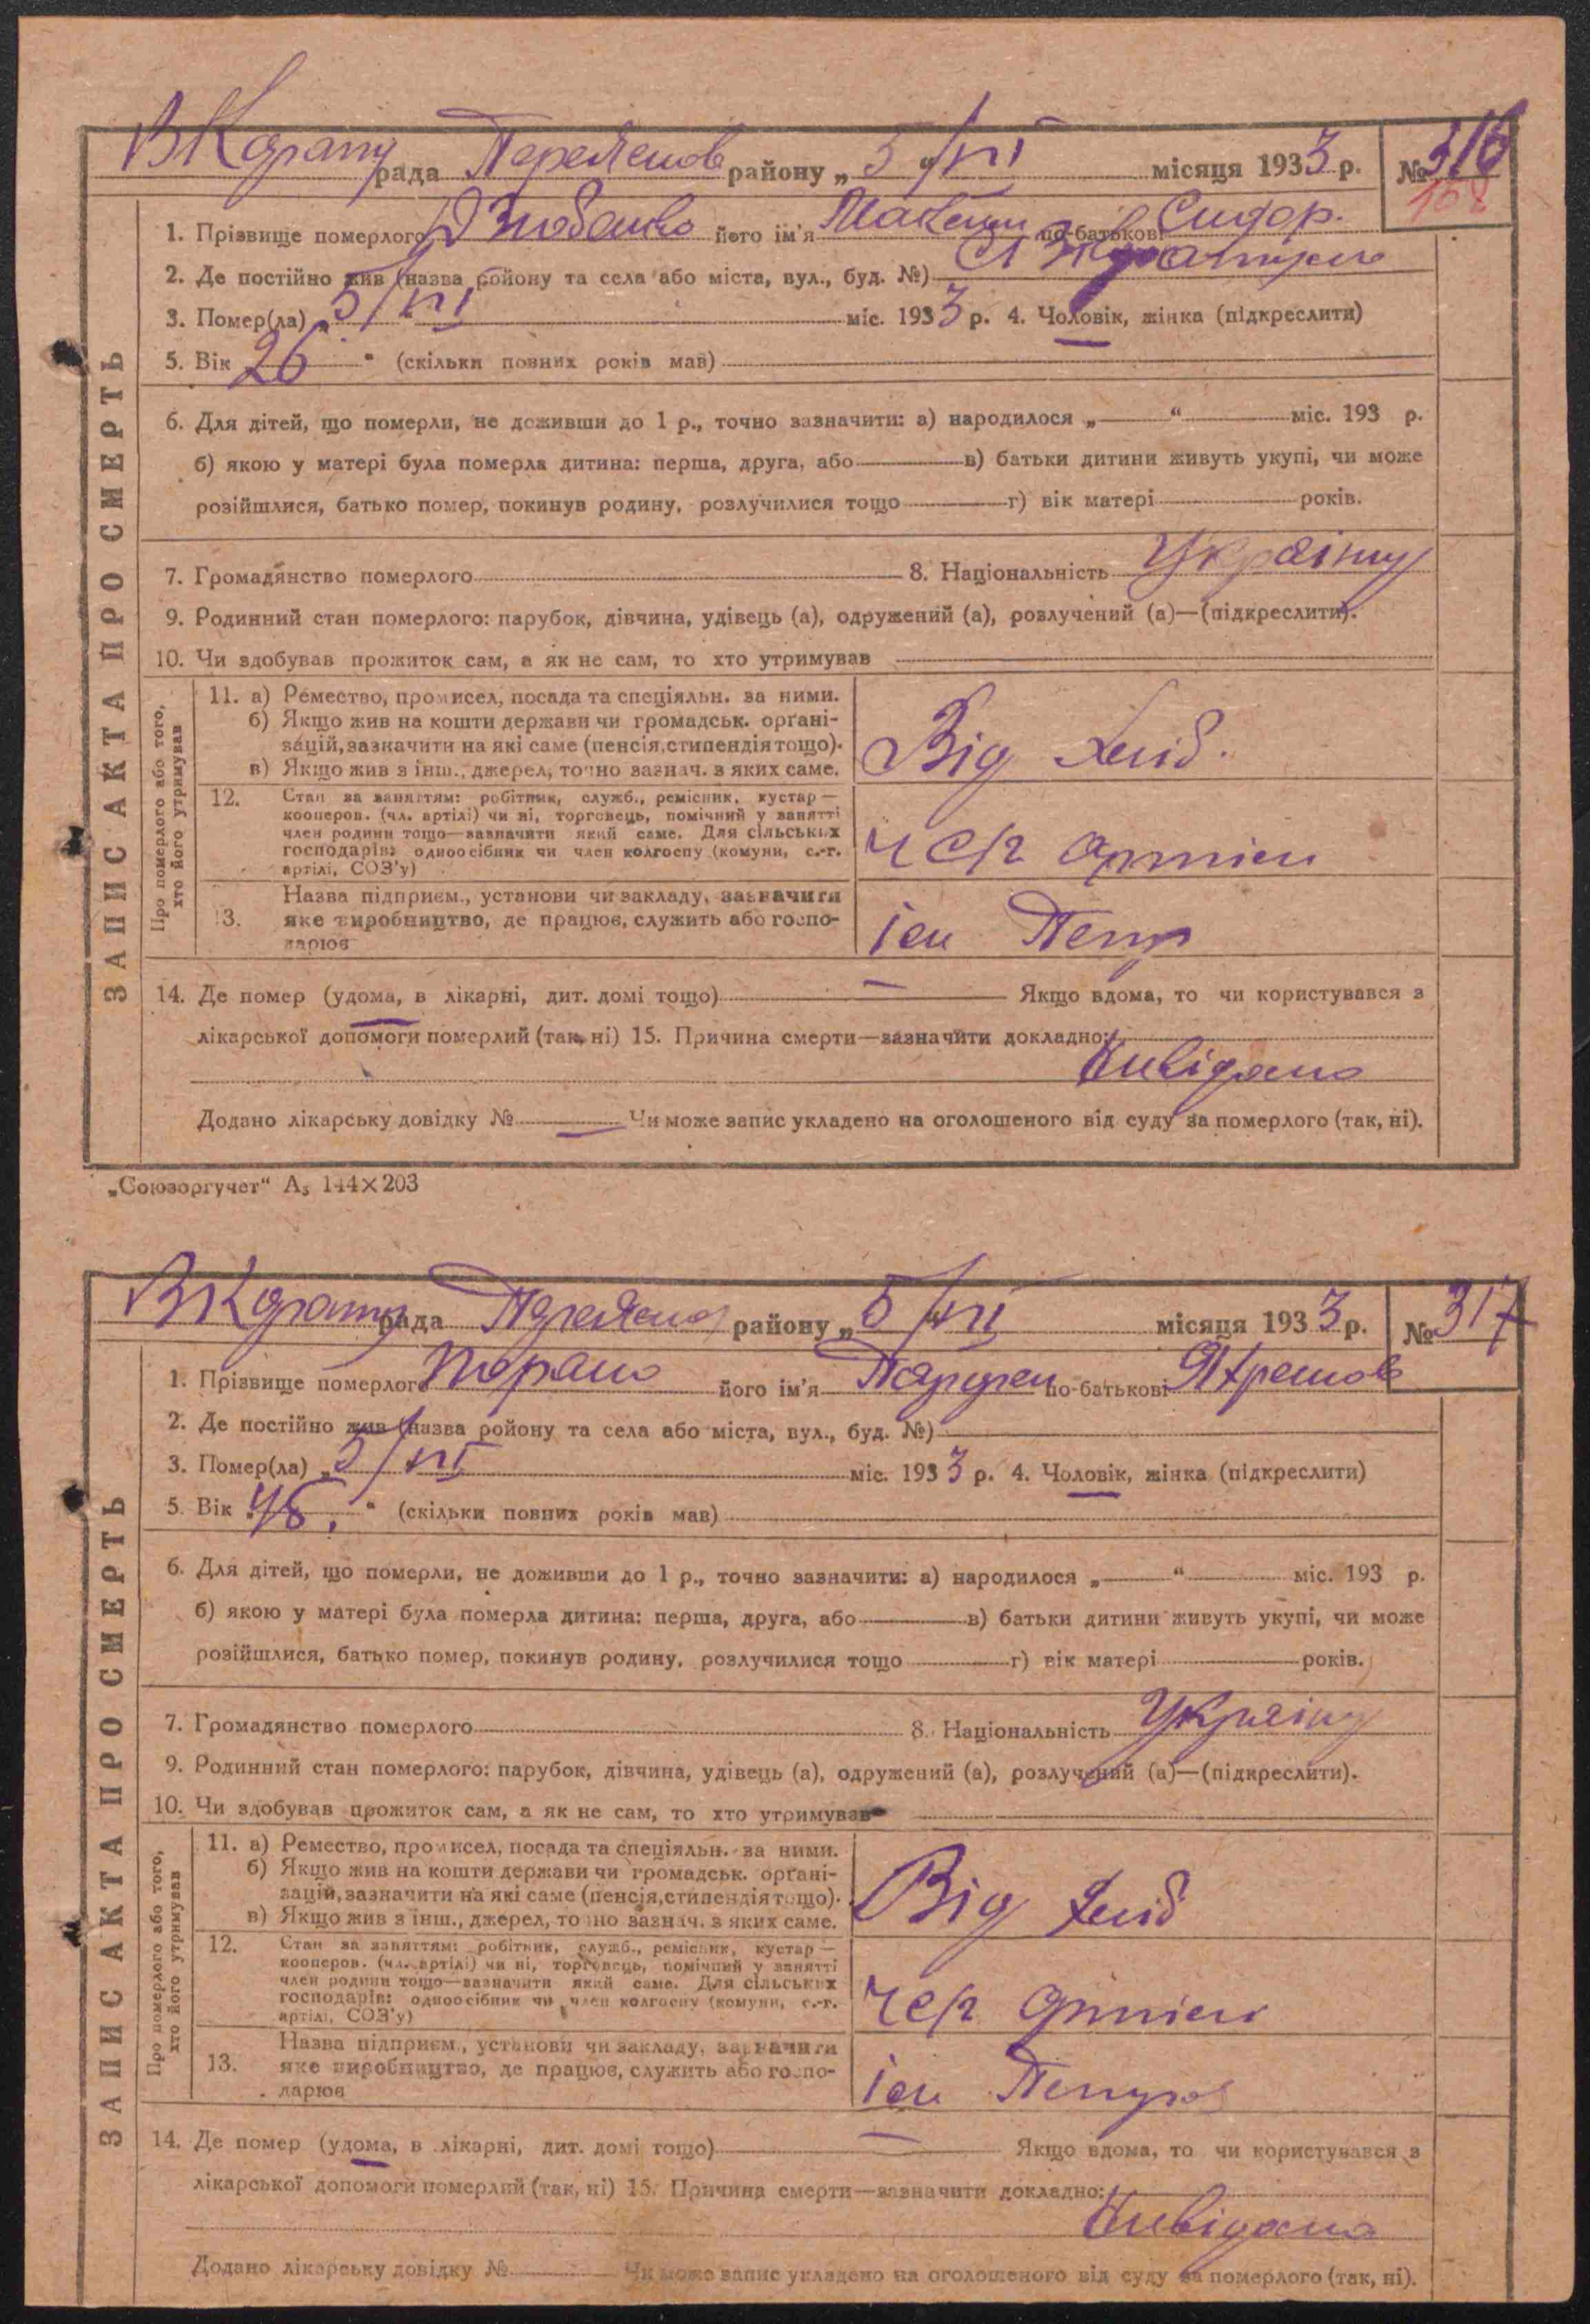 ВКарату рада Переяслов района „ 5 "/VI місяця 1933 р. № 316
168
1. Прізвище померлого Дзюбанко його ім'я Максим по-батькові Сидор.
2. Де постійно жив (назва ройону та села або міста, вул., буд. №) С
3. Помер(ла) „ 5/VI міс. 1933 р. 4. Чоловік, жінка (підкреслити)
5. Вік 26 " (скільки повних років мав)
6. Для дітей, що померли, не доживши до 1 р., точно зазначити: а) народилося „ " міс. 193 р.
б) якою у матері була померла дитина: перша, друга, або в) батьки дитини живуть укупі, чи може
розійшлися, батько помер, покинув родину, розлучилися тощо г) вік матері років.
7. Громадянство померлого 8. Національність Україну
9. Родинний стан померлого: парубок, дівчина, удівець (а), одружений (а), розлучений (а)—(підкреслити).
10. Чи здобував прожиток сам, а як не сам, то хто утримував
ЗАПИС АКТА ПРО СМЕРТЬ
Про померлого або того,
хто його утримував
11. а) Ремество, промисел, посада та спеціяльн. за ними.
б) Якщо жив на кошти держави чи громадськ. орґані-
зацій, зазначити на які саме (пенсія, стипендія тощо).
в) Якщо жив з інш., джерел, точно зазнач. з яких саме.
Від хліб.
12. Стан за заняттям: робітник, служб., ремісник, кустар —
кооперов. (чл. артілі) чи ні, торговець, помічний у занятті
член родини тощо—зазначити який саме. Для сільських
господарів: одноосібник чи член колгоспу (комуни, с.-г.
артілі, СОЗ'у)
ч с/г артіли
13. Назва підприєм., установи чи закладу, зазначити
яке виробництво, де працює, служить або госпо-
дарює
ім Петр
14. Де помер (удома, в лікарні, дит. домі тощо) — Якщо вдома, то чи користувався з
лікарської допомоги померлий (так, ні) 15. Причина смерти—зазначити докладно:
Невідома
Додано лікарську довідку № — Чи може запис укладено на оголошеного від суду за померлого (так, ні).
„Союзоргучет" А₅ 144×203
ВКарату рада Переяслов району „ 5 "/VI місяця 1933 р. № 317
1. Прізвище померлого його ім'я Парфен по-батькові
2. Де постійно жив (назва ройону та села або міста, вул., буд. №)
3. Помер(ла) „ 5/VI міс. 1933 р. 4. Чоловік, жінка (підкреслити)
5. Вік 48. " (скільки повних років мав)
6. Для дітей, що померли, не доживши до 1 р., точно зазначити: а) народилося „ " міс. 193 р.
б) якою у матері була померла дитина: перша, друга, або в) батьки дитини живуть укупі, чи може
розійшлися, батько помер, покинув родину, розлучилися тощо г) вік матері років.
7. Громадянство померлого 8. Національність Україну
9. Родинний стан померлого: парубок, дівчина, удівець (а), одружений (а), розлучений (а)—(підкреслити).
10. Чи здобував прожиток сам, а як не сам, то хто утримував
ЗАПИС АКТА ПРО СМЕРТЬ
Про померлого або того,
хто його утримував
11. а) Ремество, промисел, посада та спеціяльн. за ними.
б) Якщо жив на кошти держави чи громадськ. орґані-
зацій, зазначити на які саме (пенсія, стипендія тощо).
в) Якщо жив з інш., джерел, точно зазнач. з яких саме.
Від хліб
12. Стан за заняттям: робітник, служб., ремісник, кустар —
кооперов. (чл. артілі) чи ні, торговець, помічний у занятті
член родини тощо—зазначити який саме. Для сільських
господарів: одноосібник чи член колгоспу (комуни, с.-г.
артілі, СОЗ'у)
ч с/г артіли
13. Назва підприєм., установи чи закладу, зазначити
яке виробництво, де працює, служить або госпо-
дарює
ім Петр
14. Де помер (удома, в лікарні, дит. домі тощо) — Якщо вдома, то чи користувався з
лікарської допомоги померлий (так, ні) 15. Причина смерти—зазначити докладно:
Невідома
Додано лікарську довідку № Чи може запис укладено на оголошеного від суду за померлого (так, ні).